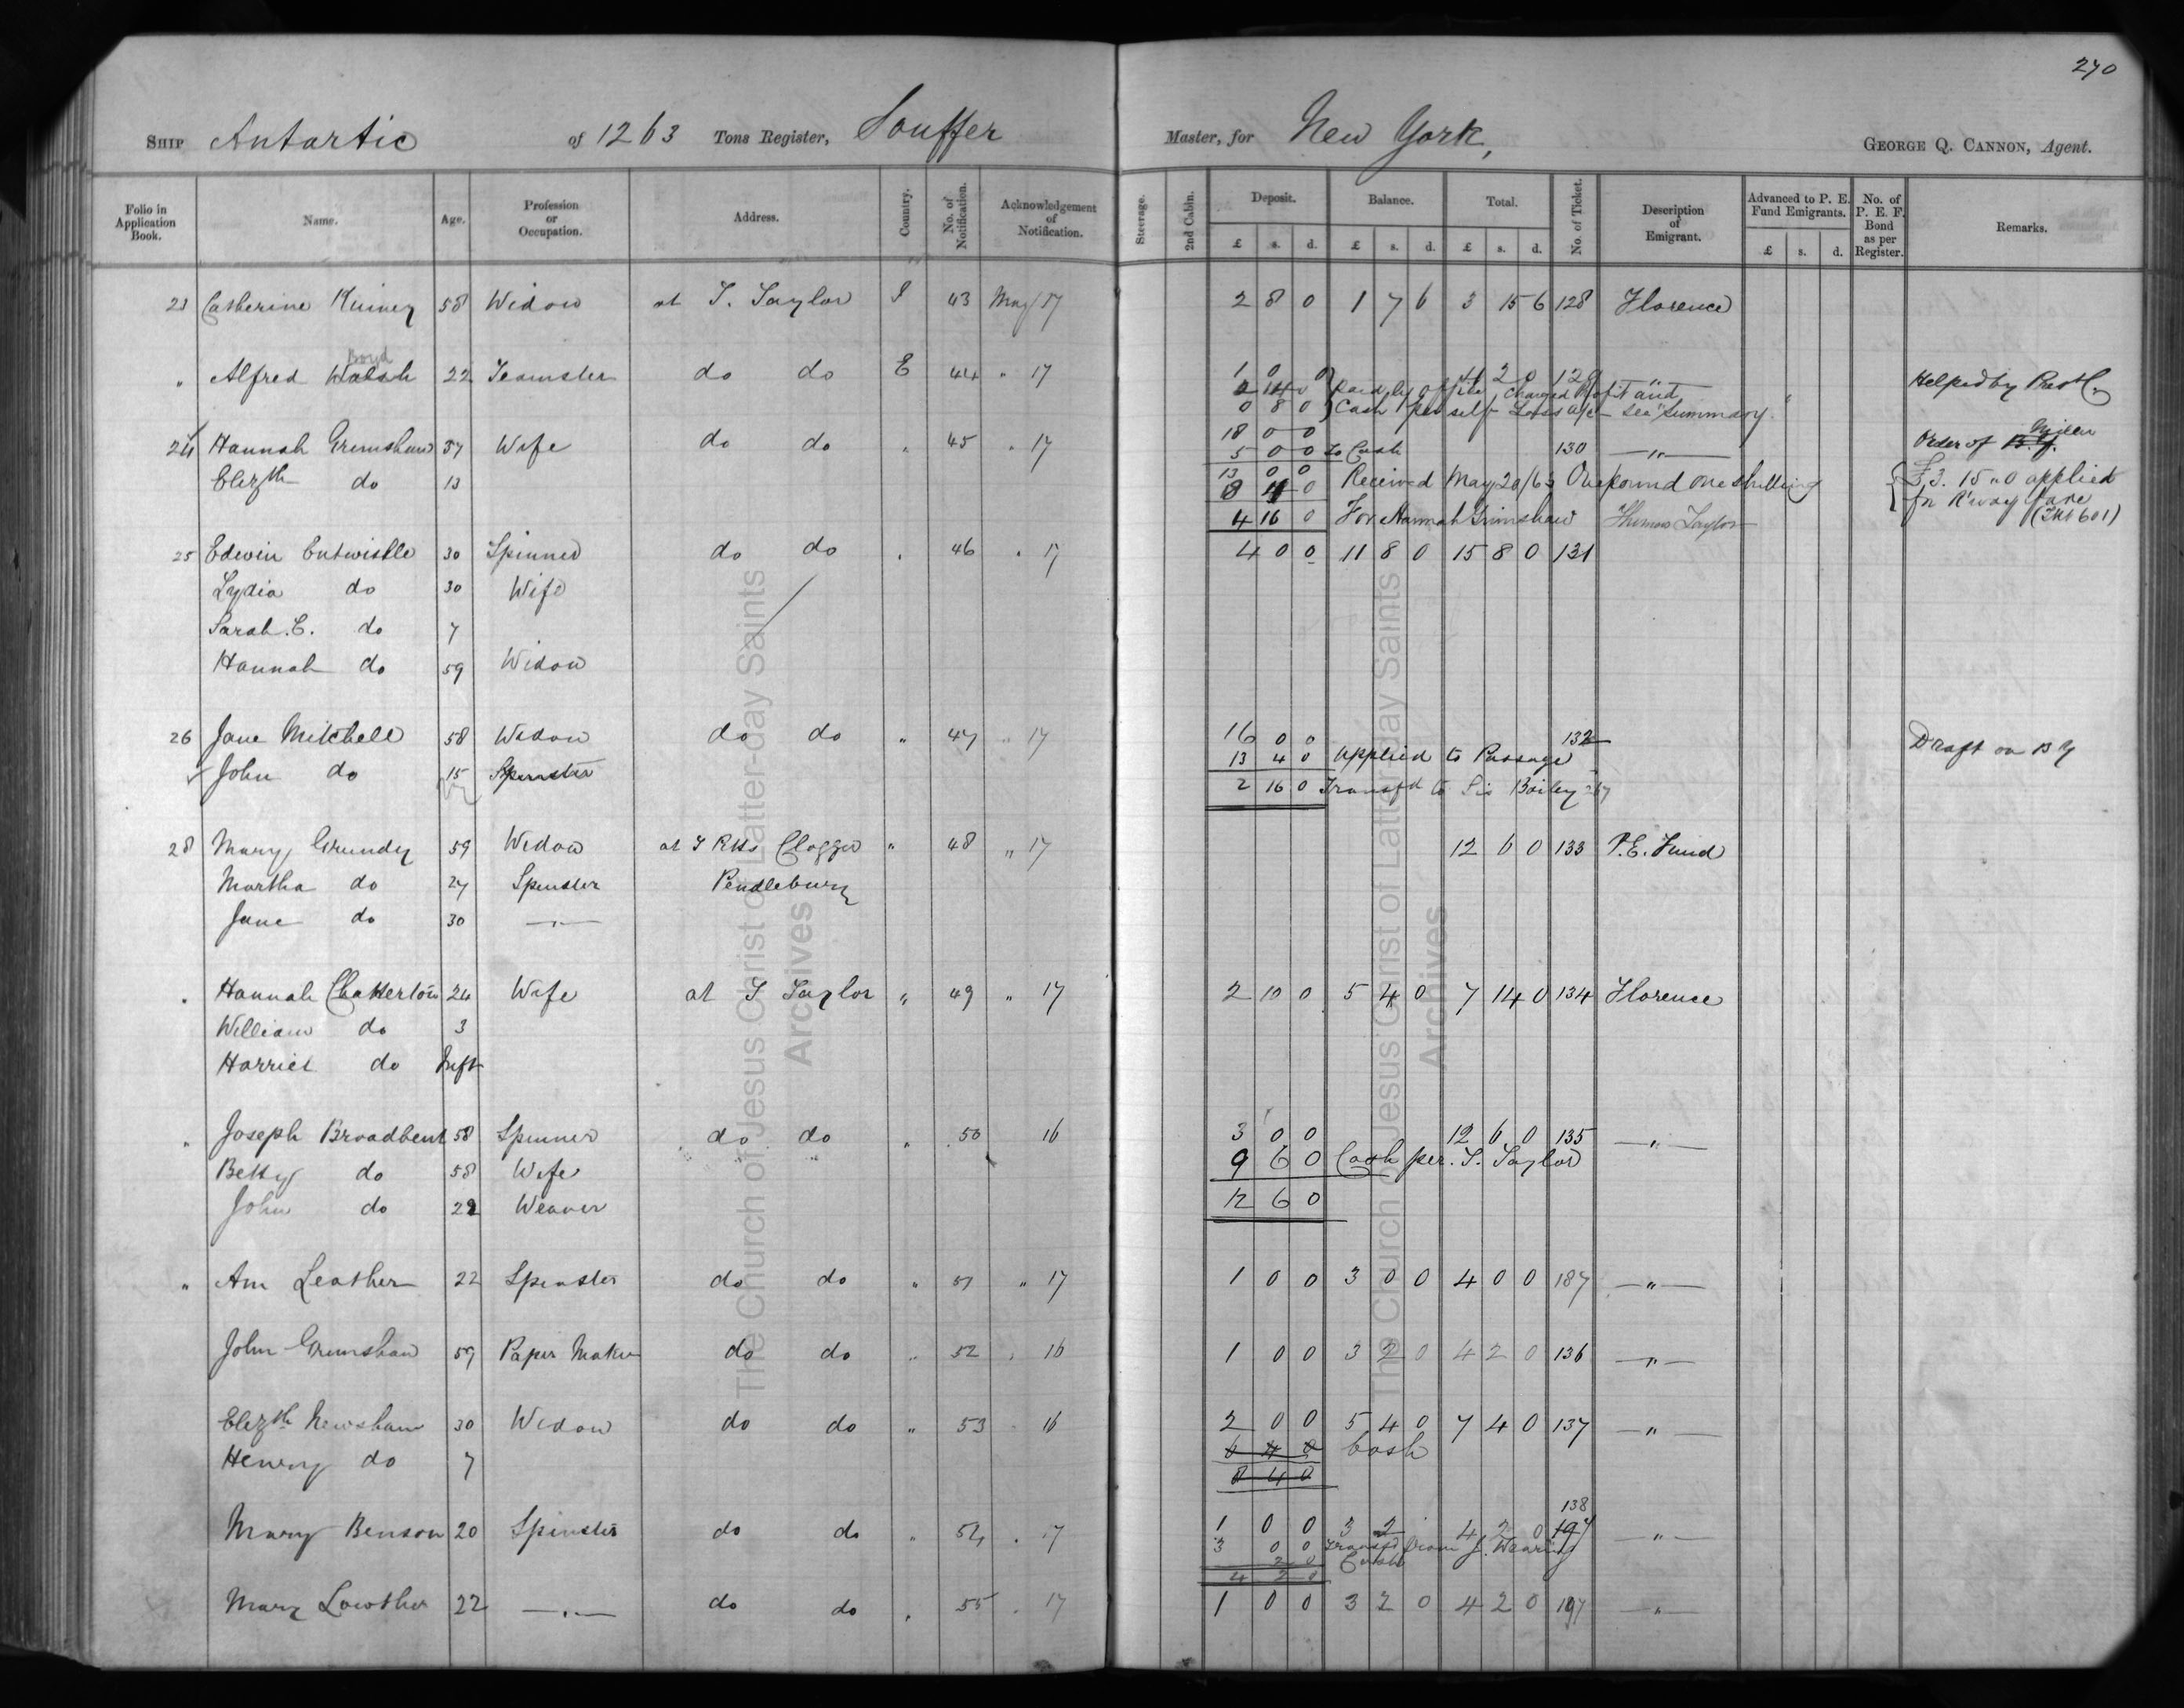 270
SHIP Antartic of 1263 Tons Register, Souffer Master, for New York, GEORGE Q. CANNON, Agent.
Folio in Application Book. Name. Age. Profession or Occupation. Address. Country. No. of Notification. Acknowledgement of Notification. Steerage. 2nd Cabin. Deposit. £ s. d. Balance. £ s. d. Total. £ s. d. No. of Ticket. Description of Emigrant. Advanced to P. E. Fund Emigrants. £ s. d. No. of P. E. F. Bond as per Register. Remarks.
23 Catherine 58 Widow at T. Taylor 43 May 17 2 8 0 1 7 6 3 15 6 128 Florence
Boyd
" Alfred Walsh 22 Teamster do do E 44 " 17 1 0 0 4 2 0 129 " Helped by
2 14 0 Paid by Office, Charged Profit and
0 8 0 Cash per self Loss a/c - see Summary.
18 0 0
24 Hannah Grimshaw 37 Wife do do " 45 " 17 5 0 0 to Cash 130 " Order of B.Y.
Elizth do 13 13 0 0 Received May 20/63 One pound one shilling £3. 15 " 0 applied
8 4 0 for R'way fare
4 16 0 For Hannah Grimshaw Thomas Taylor (Tkt 601)
25 Edwin Entwistle 30 Spinner do do " 46 " 17 4 0 0 11 8 0 15 8 0 131
Lydia do 30 Wife
Sarah E. do 7
Hannah do 59 Widow
26 Jane Mitchell 58 Widow do do " 47 " 17 16 0 0 132 Draft on B Y
13 4 0 applied to Passage
John do 15 Spinster 2 16 0 Transfd to Sis Bailey 267
28 Mary Grundy 59 Widow at Clogger " 48 " 17 12 6 0 133 P.E. Fund
Martha do 27 Spinster Pendlebury
Jane do 30 "
" Hannah Chatterton 24 Wife at T Taylor " 49 " 17 2 10 0 5 4 0 7 14 0 134 Florence
William do 3
Harriet do Inft
" Joseph Broadbent 58 Spinner do do " 50 16 3 0 0 12 6 0 135 "
Betty do 58 Wife 9 6 0 Cash per. T. Taylor
John do 22 Weaver 12 6 0
" Ann Leather 22 Spinster do do " 51 " 17 1 0 0 3 0 0 4 0 0 187 "
John Grimshaw 59 Paper Maker do do " 52 " 16 1 0 0 3 2 0 4 2 0 136 "
Elizth Newsham 30 Widow do do " 53 " 16 2 0 0 5 4 0 7 4 0 137 "
6 4 0 Cash
Henry do 7 8 4 0
138
Mary Benson 20 Spinster do do " 54 " 17 1 0 0 3 2 4 2 0 197 "
3 0 0 Transfd from J. Wearing
2 0 Cash
4 2 0
Mary Lowther 22 " do do " 55 " 17 1 0 0 3 2 0 4 2 0 197 "
The Church of Jesus Christ of Latter-day Saints
Archives
The Church of Jesus Christ of Latter-day Saints
Archives